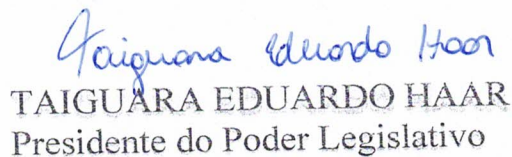 Taiguara Eduardo Haar
TAIGUARA EDUARDO HAAR
Presidente do Poder Legislativo